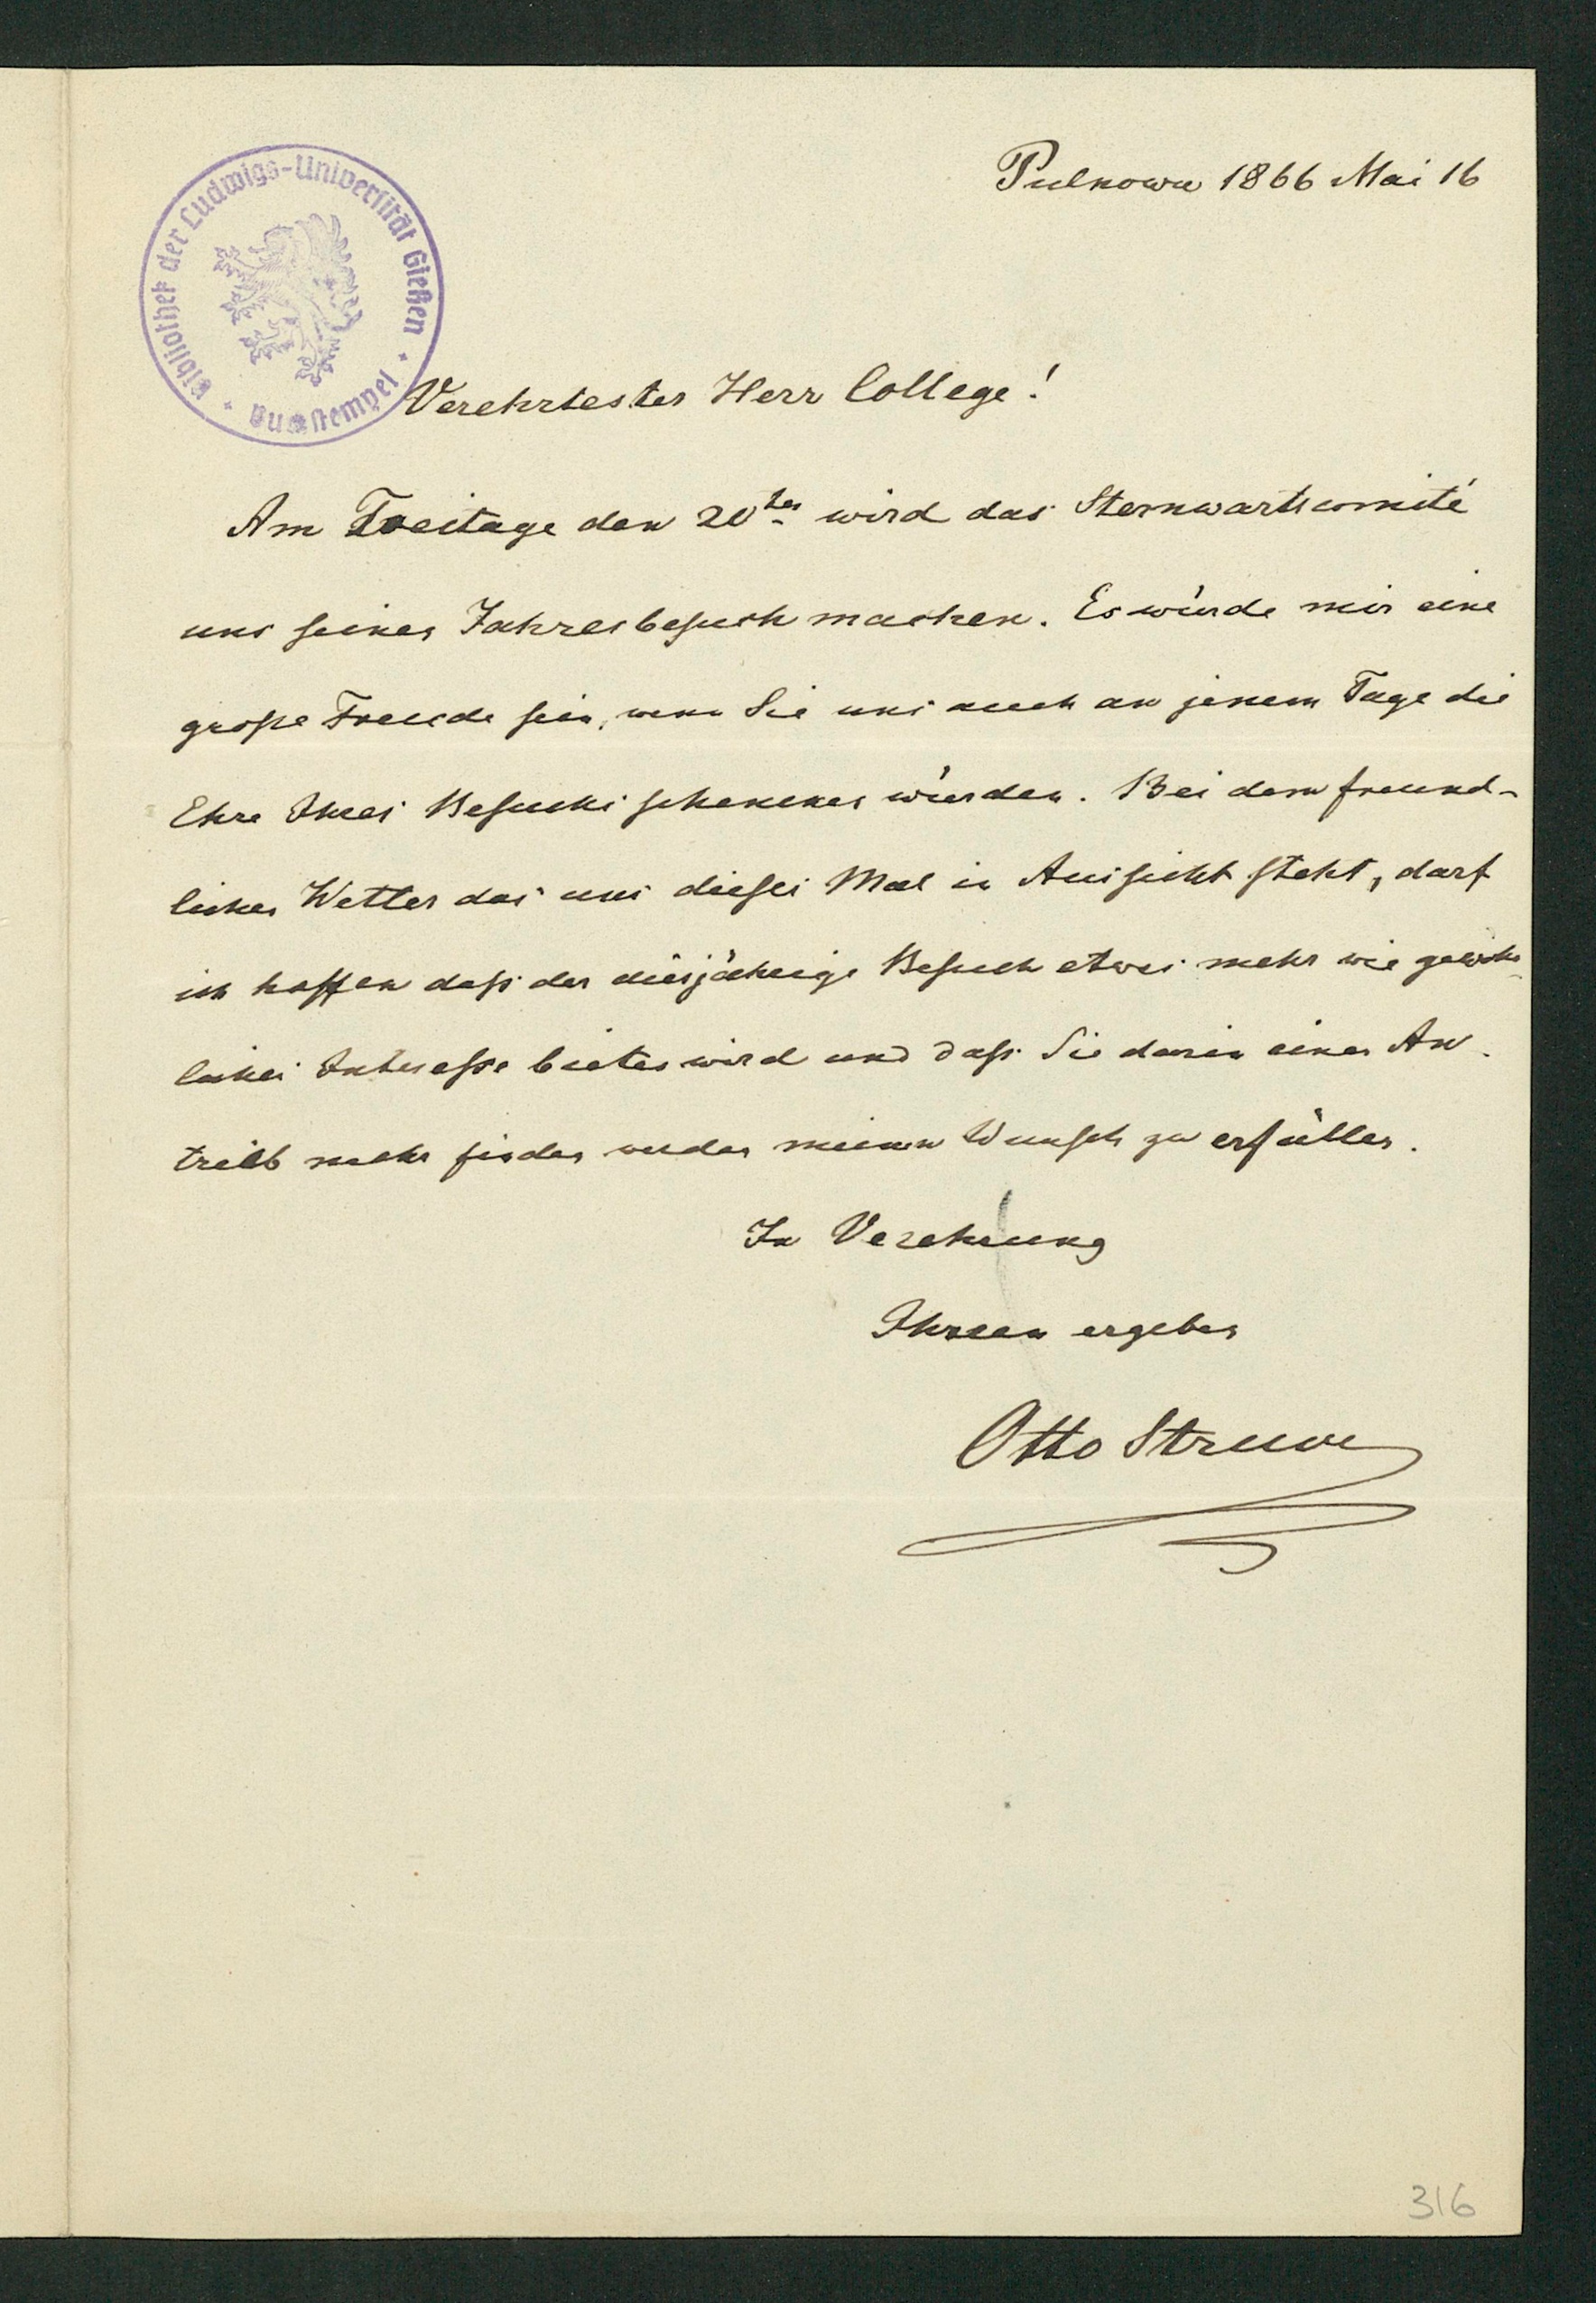 Bibliothek der Ludwigs-Universität Gießen · Buchstempel ·
Pulkowa 1866 Mai 16
Verehrtester Herr College!
Am Freitage den 20ten wird das Sternwartscomité
uns seinen Jahresbesuch machen. Es würde mir eine
große Freude sein, wenn Sie uns auch an jenem Tage die
Ehre Ihres Besuchs schenken würden. Bei dem freund-
lichen Wetter das uns dieses Mal in Aussicht steht, darf
ich hoffen daß der diesjährige Besuch etwas mehr wie gewöhn-
liches Interesse bieten wird und daß Sie darin einen An-
trieb mehr finden werden meinen Wunsch zu erfüllen.
In Verehrung
Ihnen ergeben
Otto Struve
316